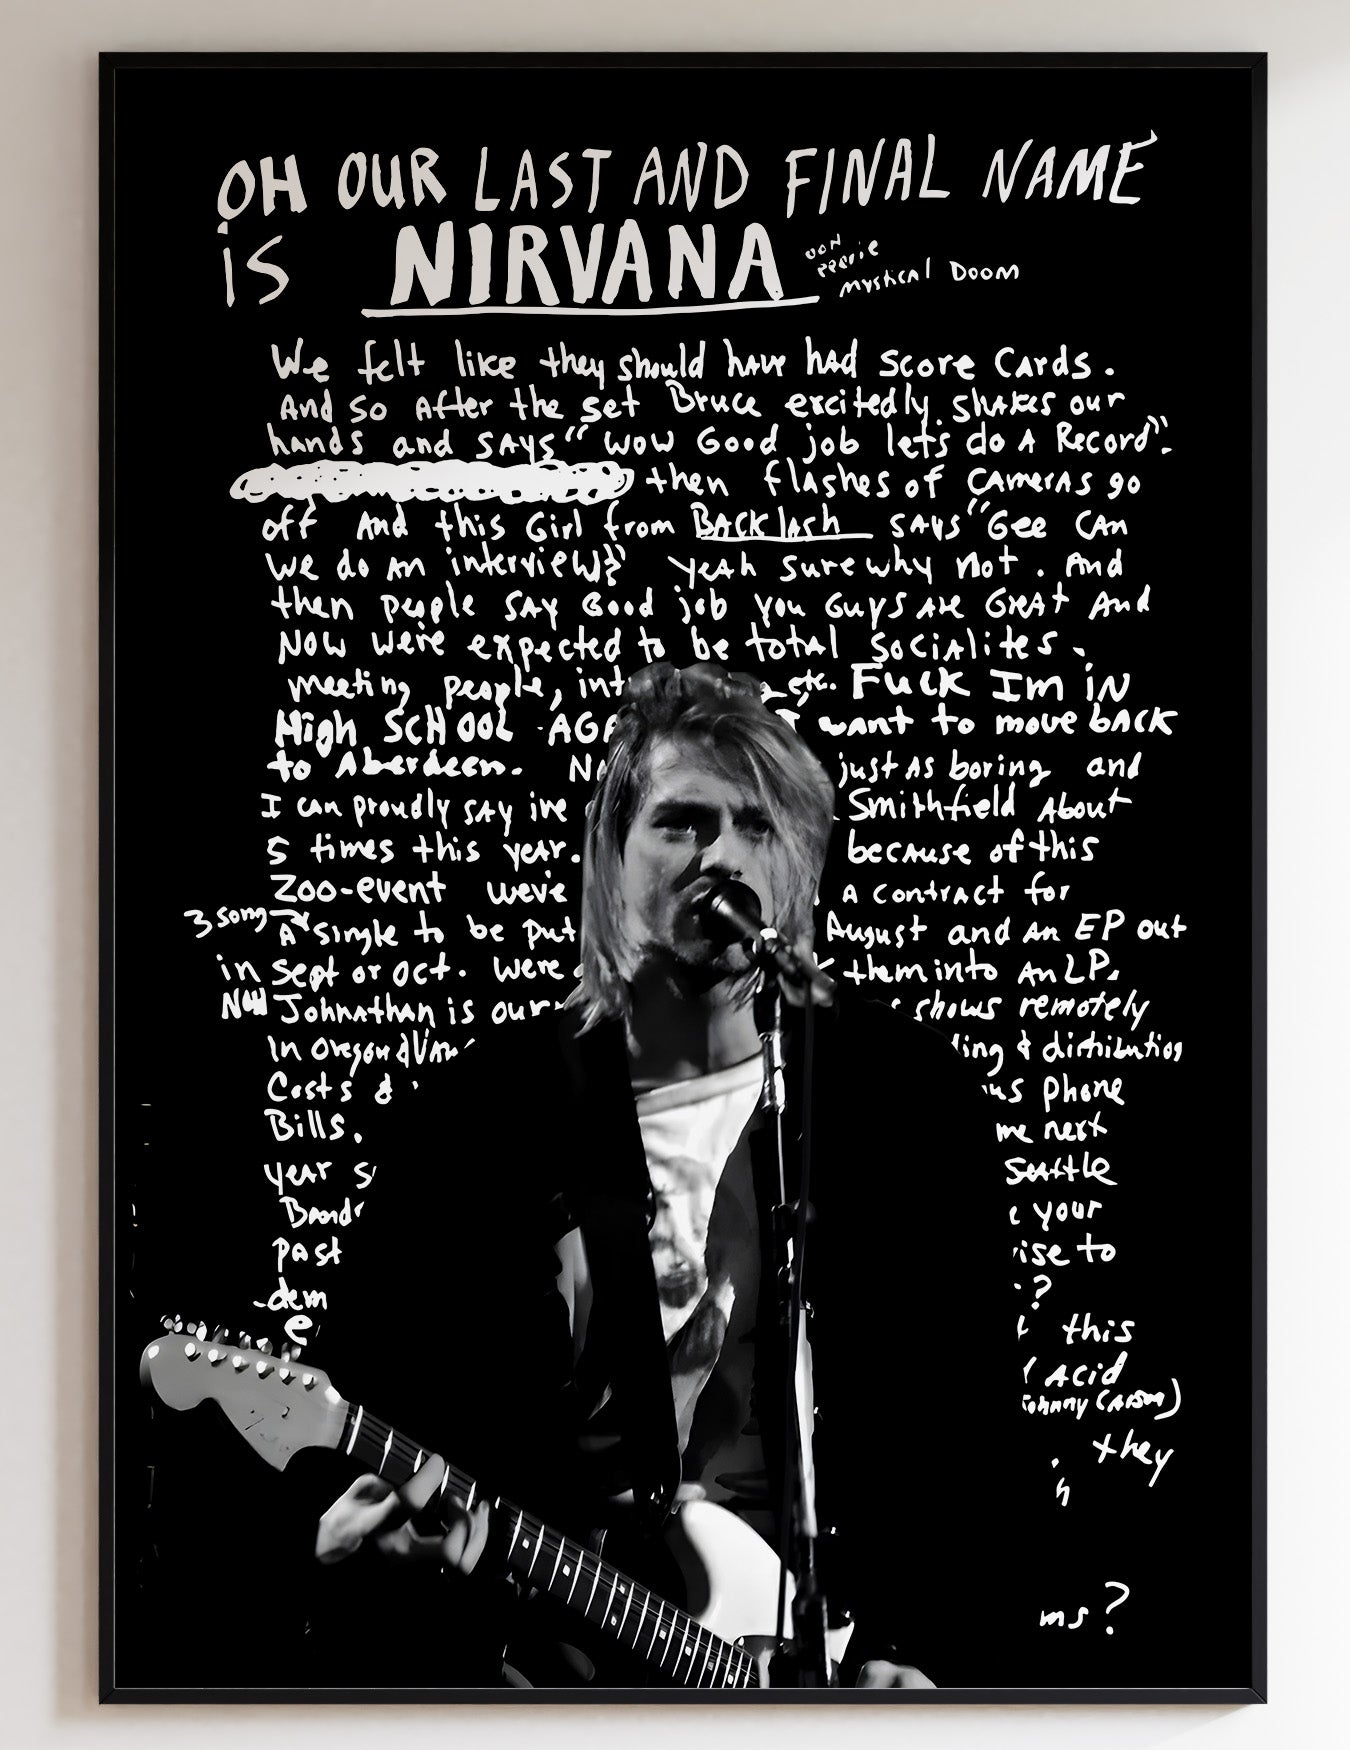 OH OUR LAST AND FINAL NAME
iS NIRVANA
mystical Doom
We felt like they should have had score cards.
And so after the set Bruce excitedly shakes our
hands and says "wow Good job lets do A Record".
then flashes of cameras go
off And this Girl from BACKlash says "Gee CAN
we do an interview?" yeah sure why not. And
then people say Good job you Guys are Great and
now were expected to be total socialites.
meeting people, int etc. FUCK Im iN
High SCHOOL AGA I want to move back
to Aberdeen. just as boring and
I can proudly say ive Smithfield About
5 times this year. because of this
Zoo-event weve a contract for
3 song
A single to be put August and an EP out
in Sept or Oct. were them into an LP.
Now Johnathan is our shows remotely
in Oregon & ing & distribution
Costs & us phone
Bills. me next
year s Seattle
Bands your
past ise to
dem ?
e this
Acid
Johnny Carson)
they
ms?